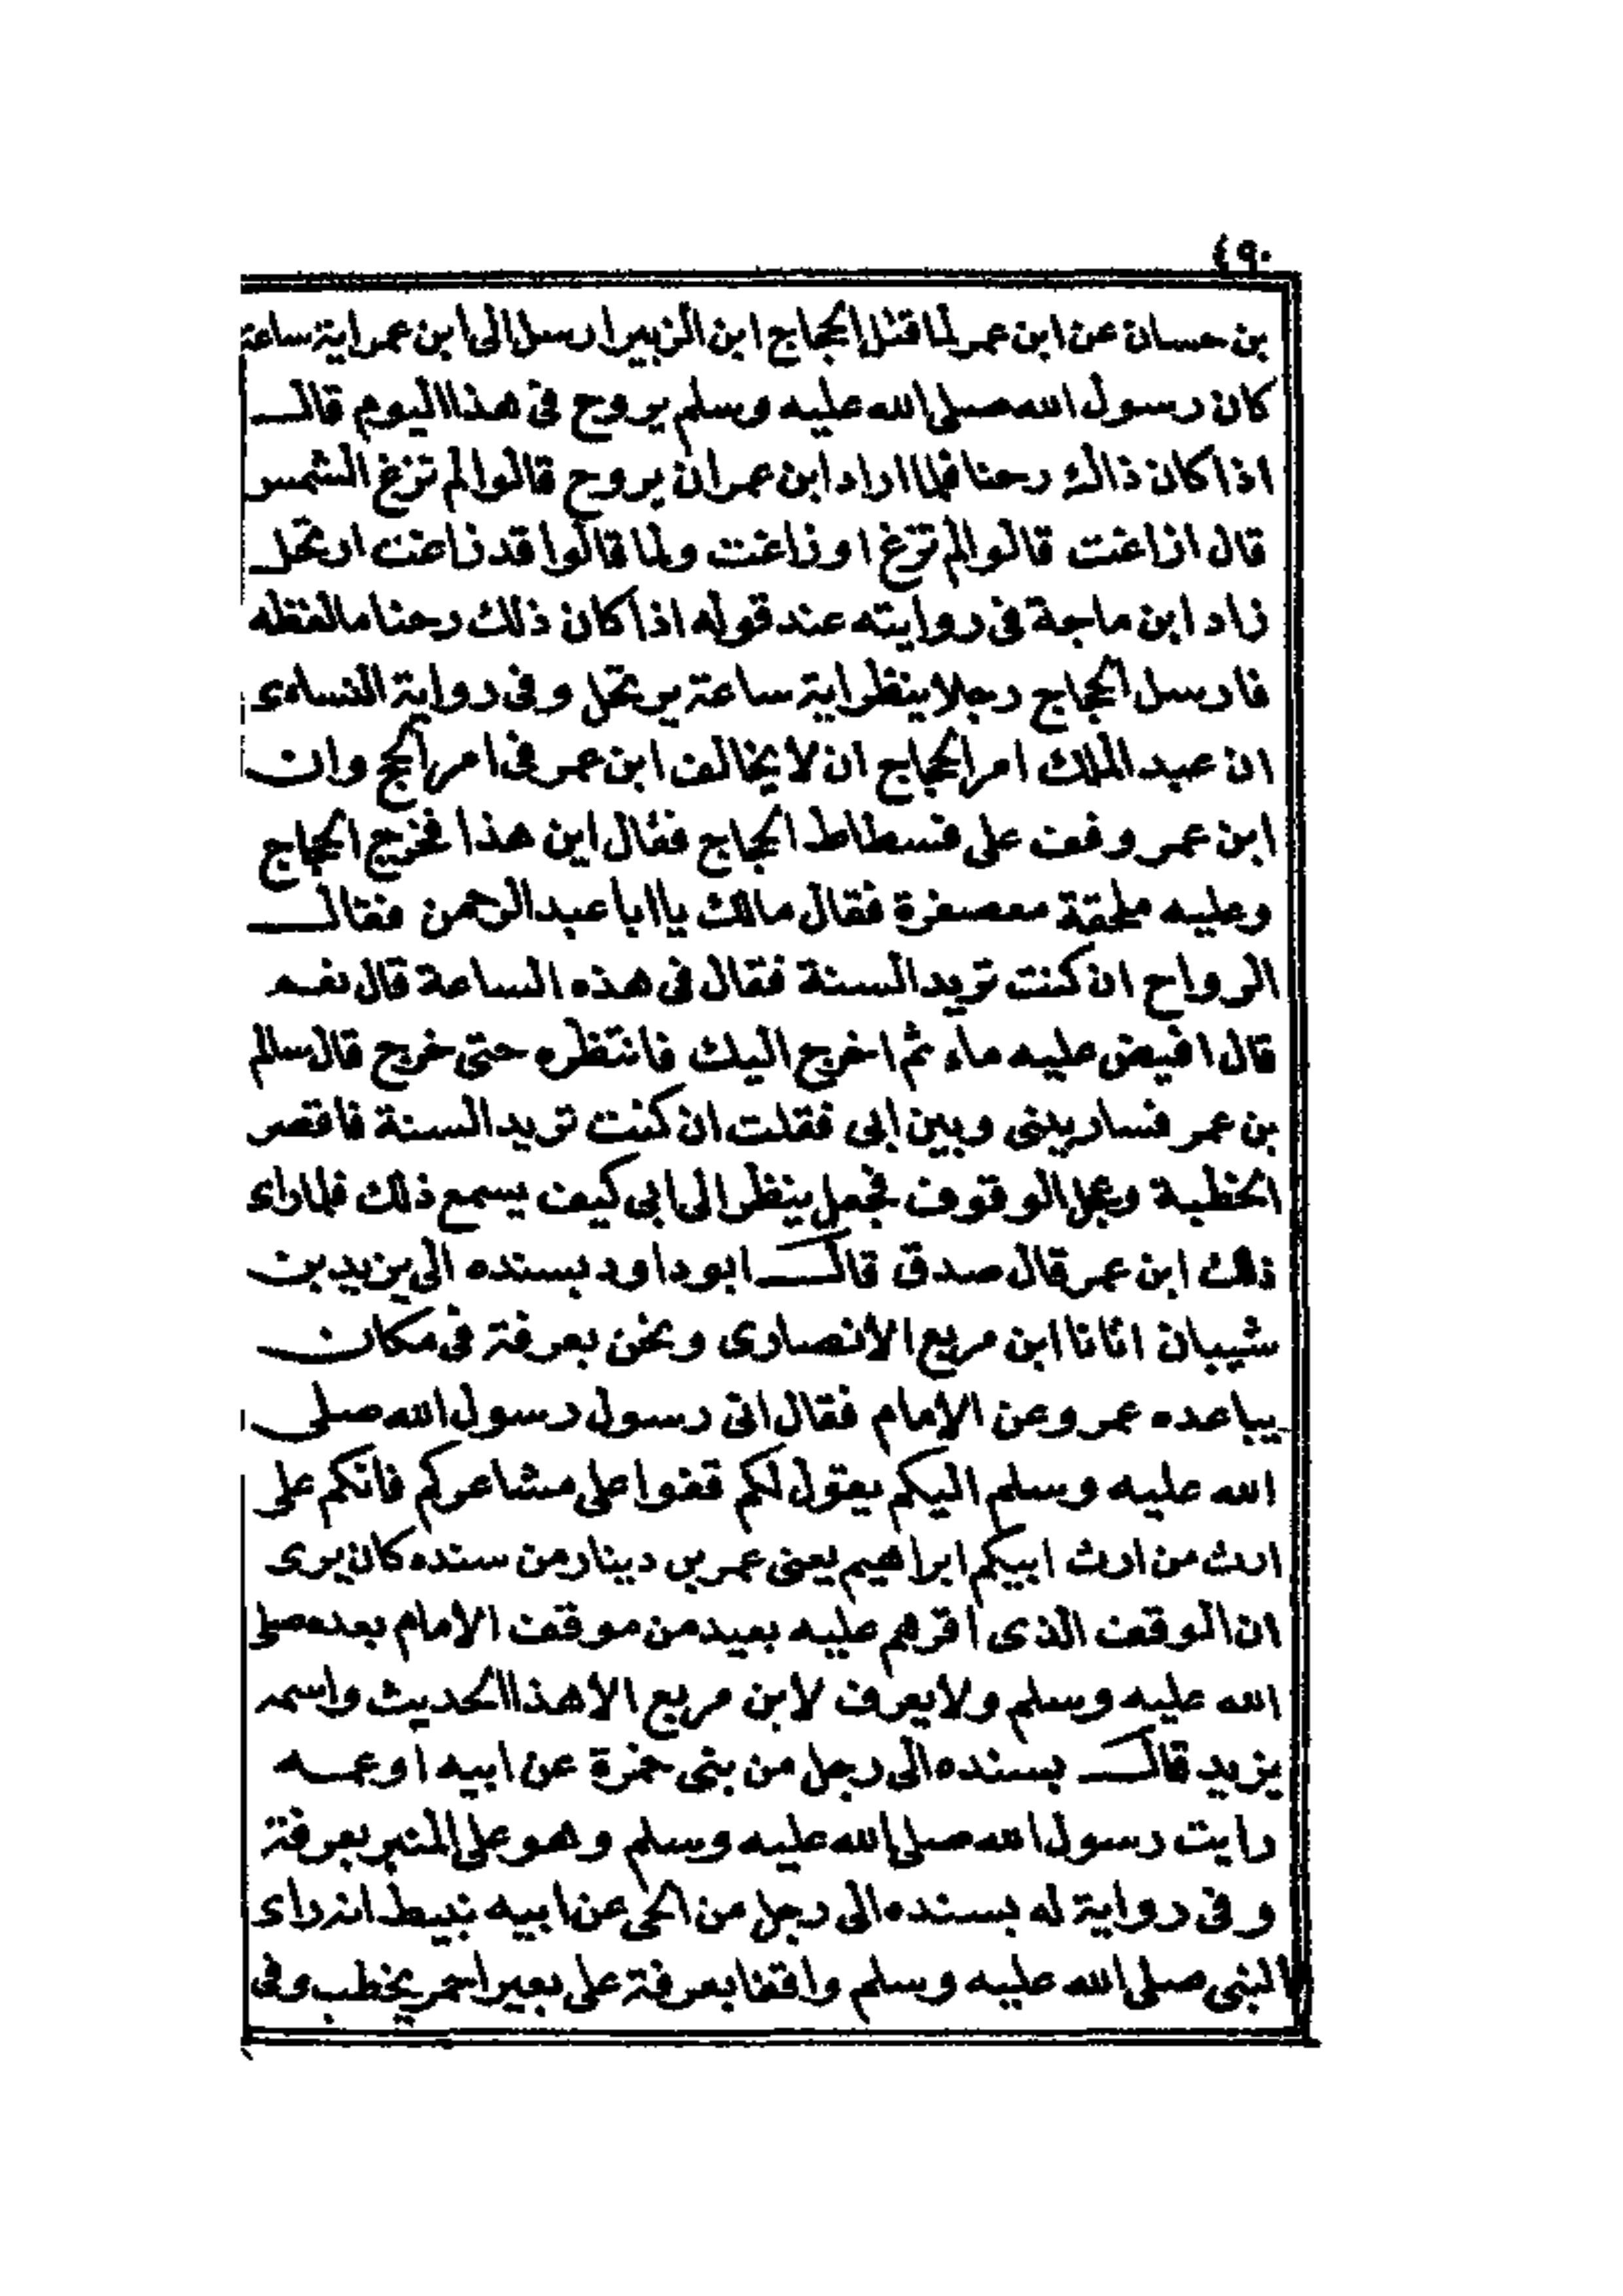 ٤٩٠
بن حسان عن ابن عمر لما قتل الحجاج ابن الزبير ارسل الى ابن عمر اية ساعة
كان رسول الله صلى الله عليه وسلم يروح فى هذا اليوم قال
اذا كان ذالك رحنا فلما اراد ابن عمر ان يروح قالوا لم تزغ الشمس
قال ازاغت قالوا لم تزغ او زاغت ولما قالوا قد زاغت ارتحل
زاد ابن ماجة فى روايته عند قوله اذا كان ذلك رحنا ما لفظه
فارسل الحجاج رجلا ينظر اية ساعة يرتحل وفى رواية النساءى
ان عبد الملك امر الحجاج ان لا يخالف ابن عمر فى امر الحج وان
ابن عمر وقف على فسطاط الحجاج فقال اين هذا فخرج الحجاج
وعليه ملحقة معصفرة فقال مالك يا ابا عبد الرحمن فقال
الرواح ان كنت تريد السنة فقال فى هذه الساعة قال نعم
قال افيض عليه ماء ثم اخرج اليك فانتظره حتى خرج قال سالم
بن عمر فسار بينى وبين ابى فقلت ان كنت تريد السنة فاقصر
الخطبة وعجل الوقوف فجعل ينظر الى ابى كيف يسمع ذلك فلما راء
ذلك ابن عمر قال صدق قال ابو داود بسنده الى يزيد بن
شيبان اتانا ابن مربع الانصارى ونحن بعرفة فى مكان
يباعده عمرو عن الامام فقال انى رسول رسول الله صلى
الله عليه وسلم اليكم يقول لكم قفوا على مشاعركم فانكم على
ارث من ارث ابيكم ابراهيم يعنى عمر بن دينار من سنده كان يرى
ان الوقف الذى اقرهم عليه بعيد من موقف الامام بعده صلى
الله عليه وسلم ولا يعرف لابن مربع الا هذا الحديث واسمه
يزيد قال بسنده الى رجل من بنى حمزة عن ابيه او عمه
رايت رسول الله صلى الله عليه وسلم وهو على المنبر بعرفة
وفى رواية له بسنده الى رجل من الحى عن ابيه نبيط انه راء
النبى صلى الله عليه وسلم واقفا بعرفة على بعير احمر يخطب وفى